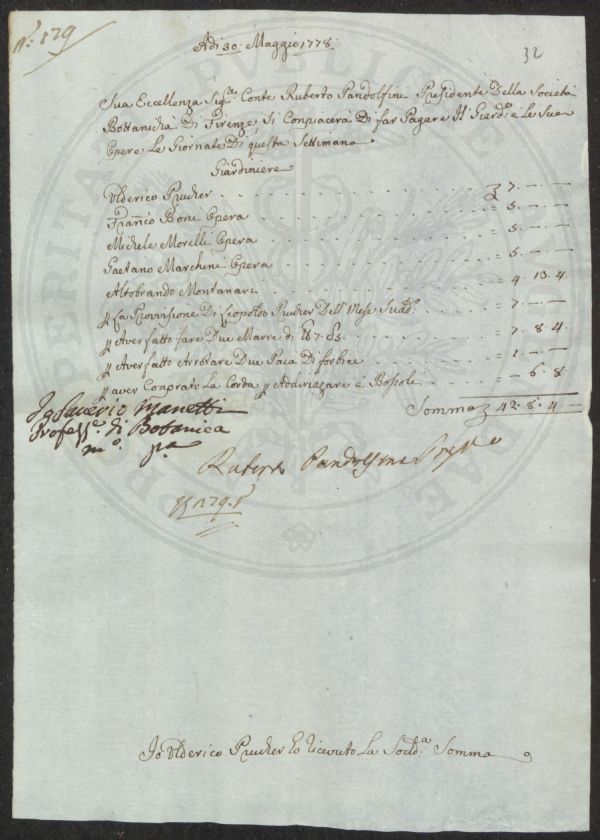 N.º 129
32
Adi 30: Maggio 1778:
Sua Eccellenza Sig.re Conte Ruberto Pandolfini Presidente Della Societa
Bottanicha Di Firenze, Si Conpiacerà Di far Pagare Al Giard.e e Le Sue
Opere Le Giornate Di questa Settimana
Giardiniere
Ulderico Prucher . . . 7. — —
Franco Boni Opera . . . = 5. — —
Michele Morelli Opera . . . = 5. — —
Gaetano Marchini Opera . . . = 5. — —
Altobrando Montanari . . . = 4. 13. 4.
p La Provisione Di Leopoldo Prucher Dell' Mese Sudd.o . . = 7. — —
p Aver fatto fare Due Marre di 7. . . = 7. 8. 4.
p Aver fatto Arrotare Due Paia Di forbice . . . = 1. — —
p aver Conprato La Corda p Addirizzare e Bossoli . . = — 6. 8
Somma 42. 8. 4. —
Saverio Manetti
Profess.e di Botanica
m.o pa
Ruberto Pandolfini Press.e
129.
Io Ulderico Prucher ho ricevuto La Sudd.a Somma